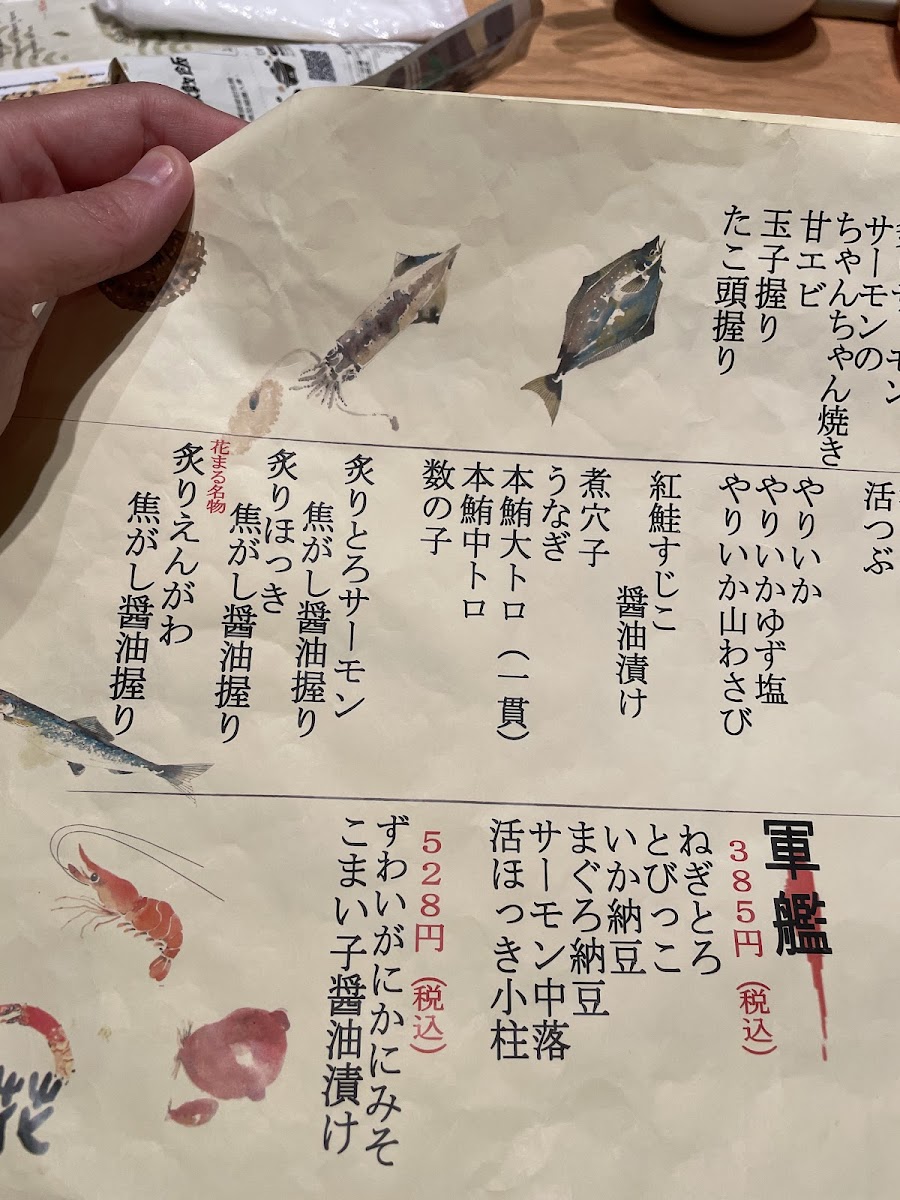 サーモンの
ちゃんちゃん焼き
甘エビ
玉子握り
たこ頭握り
活つぶ
やりいか
やりいかゆず塩
やりいか山わさび
紅鮭すじこ
醤油漬け
煮穴子
うなぎ
本鮪大トロ（一貫）
本鮪中トロ
数の子
炙りとろサーモン
焦がし醤油握り
炙りほっき
焦がし醤油握り
花まる名物
炙りえんがわ
焦がし醤油握り
軍艦
385円（税込）
ねぎとろ
とびっこ
いか納豆
まぐろ納豆
サーモン中落
活ほっき小柱
528円（税込）
ずわいがにかにみそ
こまい子醤油漬け